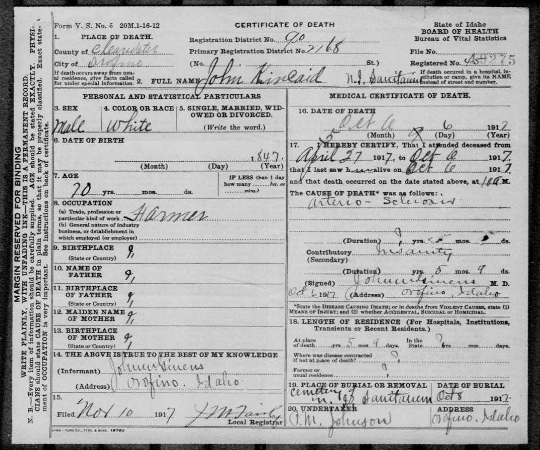 Form V. S. No. 5 20M.1-16-12
CERTIFICATE OF DEATH
State of Idaho
BOARD OF HEALTH
Bureau of Vital Statistics
1. PLACE OF DEATH.
County of Clearwater
City of Orofino
Registration District No. 90
Primary Registration District No. 2168
(No. St.)
File No.
Registered No.
If death occurs away from usual residence, give facts called for under special information.
If death occurred in a hospital, institution or camp, give its NAME instead of street and number.
2. FULL NAME John Kincaid
N.I. Sanitarium
PERSONAL AND STATISTICAL PARTICULARS
3. SEX
Male
4. COLOR OR RACE
White
5. SINGLE, MARRIED, WIDOWED OR DIVORCED.
(Write the word.)
6. DATE OF BIRTH
1847.
(Month) (Day) (Year)
7. AGE
70 yrs. mos. ds.
IF LESS than 1 day how many hrs. or min.?
8. OCCUPATION
(a) Trade, profession or particular kind of work
Farmer
(b) General nature of industry, business, or establishment in which employed (or employer)
9. BIRTHPLACE
(State or Country)
?
10. NAME OF FATHER
?
11. BIRTHPLACE OF FATHER
(State or Country)
?
12. MAIDEN NAME OF MOTHER
?
13. BIRTHPLACE OF MOTHER
(State or Country)
?
14. THE ABOVE IS TRUE TO THE BEST OF MY KNOWLEDGE
(Informant) John
(Address) Orofino, Idaho
15.
Filed Nov 10 1917
Local Registrar
MEDICAL CERTIFICATE OF DEATH
16. DATE OF DEATH
Oct 6 6 1917
(Month) (Day) (Year)
17. I HEREBY CERTIFY, That I attended deceased from
April 27 1917, to Oct 6 1917
that I last saw h alive on Oct 6 1917
and that death occurred on the date stated above, at M.
The CAUSE OF DEATH* was as follows:
Arterio-Sclerosis
(Duration) ? yrs. mos. ds.
Contributory Insanity
(Secondary)
(Duration) yrs. 5 mos. 9 ds.
(Signed) John M. D.
Oct 6 1917 (Address) Orofino, Idaho
*State the Disease Causing Death; or in deaths from Violent Causes, state (1) Means of Injury; and (2) whether Accidental, Suicidal or Homicidal.
18. LENGTH OF RESIDENCE (For Hospitals, Institutions, Transients or Recent Residents.)
At place of death yrs. 5 mos. 9 ds. In the State ? yrs. mos. ds.
Where was disease contracted if not at place of death? ?
Former or usual residence ?
19. PLACE OF BURIAL OR REMOVAL
Cemetery N. Id Sanitarium
DATE OF BURIAL
Oct 8 1917
20. UNDERTAKER
Johnson
ADDRESS
Orofino, Idaho
MARGIN RESERVED FOR BINDING
WRITE PLAINLY, WITH UNFADING INK—THIS IS A PERMANENT RECORD.
N. B.—Every item of information should be carefully supplied. AGE should be stated EXACTLY. PHYSICIANS should state CAUSE OF DEATH in plain terms, so that it may be properly classified. Exact statement of OCCUPATION is very important. See instructions on back of certificate.